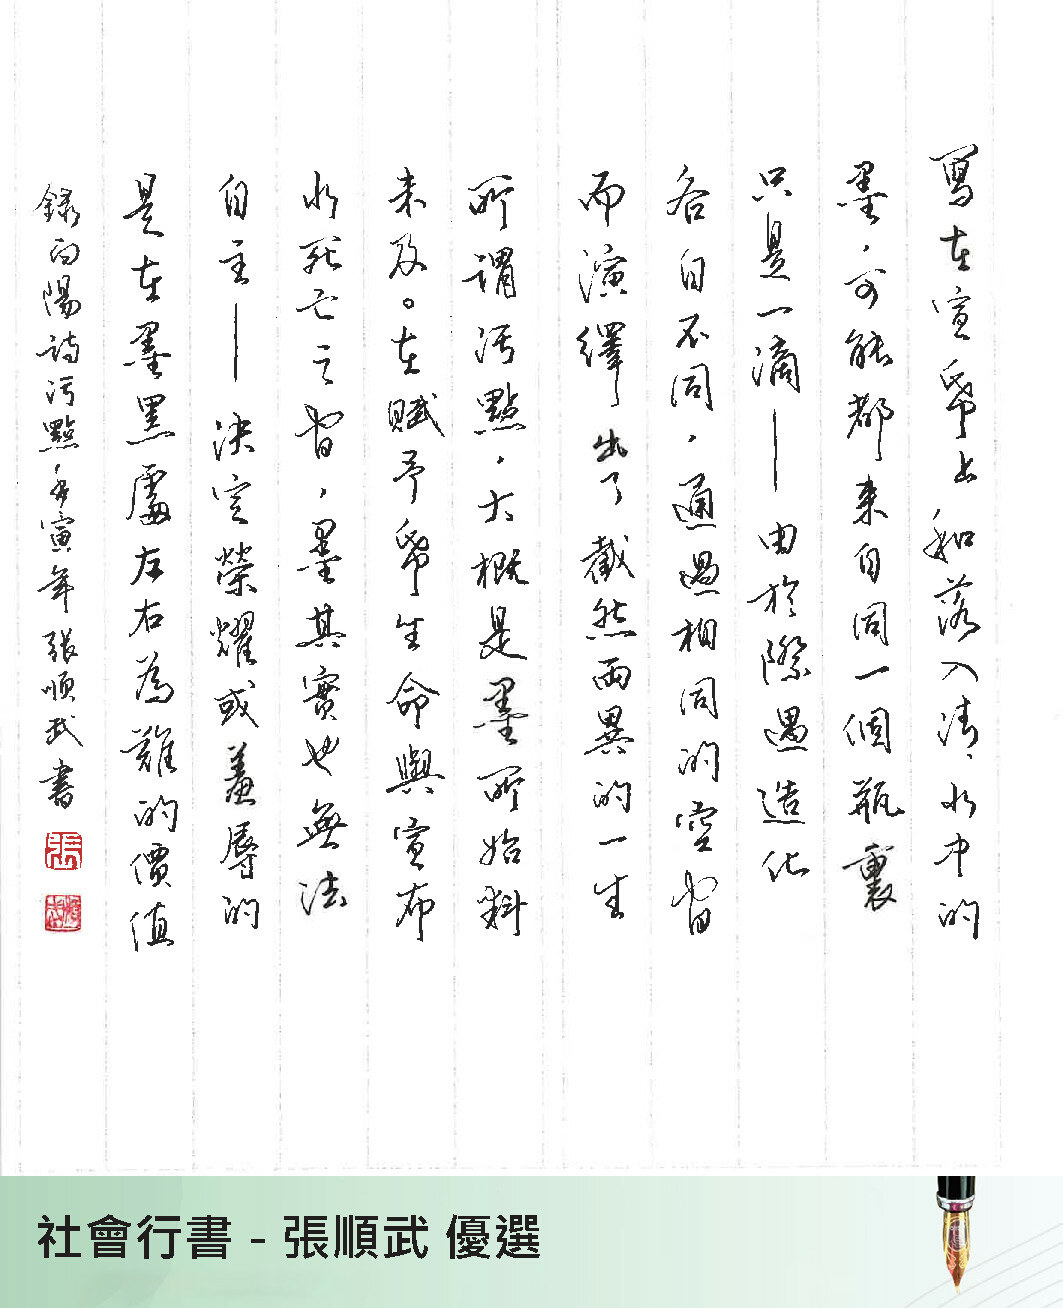 寫在宣帋上和落入清水中的
墨，可能都来自同一個瓶裏
只是一滴——由於際遇造化
各自不同，通過相同的空間
而演繹出了截然兩異的一生
所謂污點，大概是墨所始料
未及。在賦予帋生命與宣布
水死亡之間，墨其實也無法
自主——決定榮耀或羞辱的
是在墨黑處左右為難的價值
錄向陽詩污點 寅年 張順武書
張
順武
社會行書 - 張順武 優選